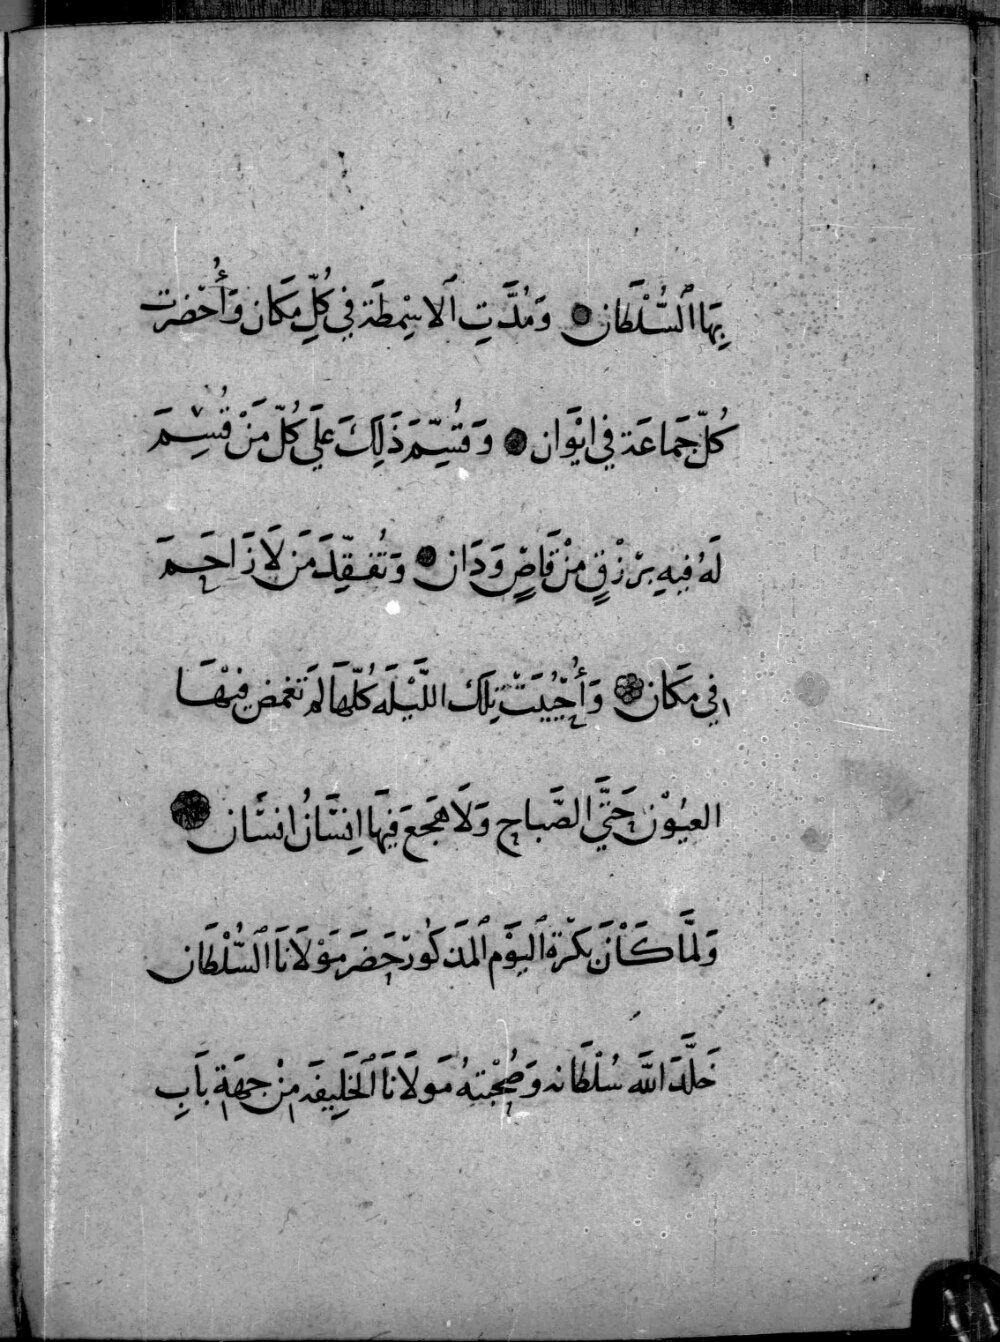 بِهَا ٱلسُّلْطَان وَمُدَّتِ ٱلاسْمِطَة فِي كُلِّ مَكَان وَأُحْضرت
كُلّ جَمَاعَة فِي ايْوَان وَقُسِّمَ ذَلِكَ عَلَي كُلّ مَنْ قُسِمَ
لَهُ فِيهِ بِرْزْقٍ مِنْ قَاصٍ وَدَان وَتُفُقِّدَ مَن لَا زَاحَمَ
فِي مَكَان وَأُحْيِيَتْ تِلكَ اللَّيْلَه كُلّهَا لَمْ تَغمض فِيْهَا
العيُوْن حَتَّي الصَّبَاح وَلَا هَجَعَ فِيهَا اِنسَانُ انسَان
وَلمَّا كَانَ بَكْرَة ٱليَوْم ٱلمَذكُور حَضَر مَوْلَانَا ٱلسُّلْطَان
خَلَّدَ اللَّه سُلْطَانه وَصُحْبَتهُ مَولَانَا ٱلخَلِيفَه مِنْ جِهَةِ بَابِ